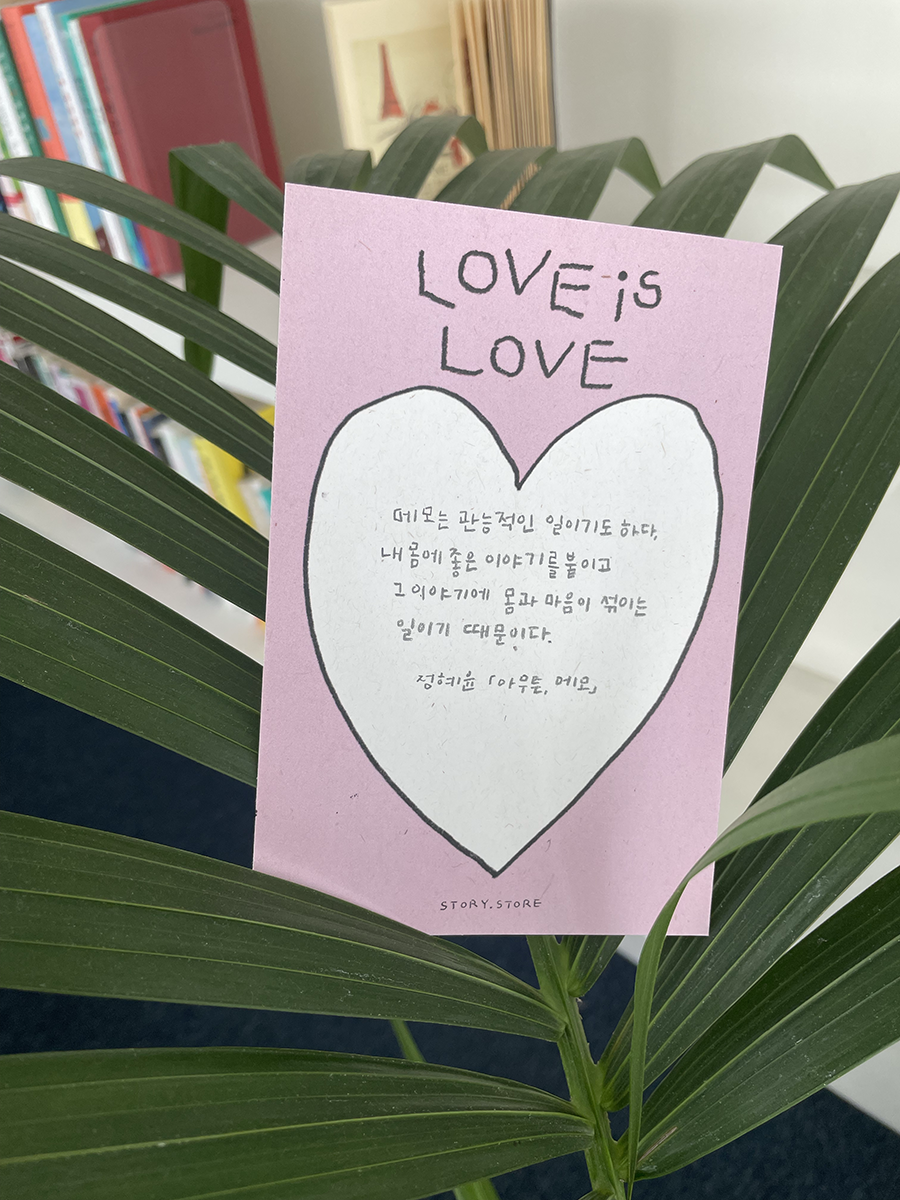 LOVE is
LOVE
메모는 관능적인 일이기도 하다,
내 몸에 좋은 이야기를 붙이고
그 이야기에 몸과 마음이 섞이는
일이기 때문이다.
정혜윤 「아무튼, 메모」
STORY.STORE